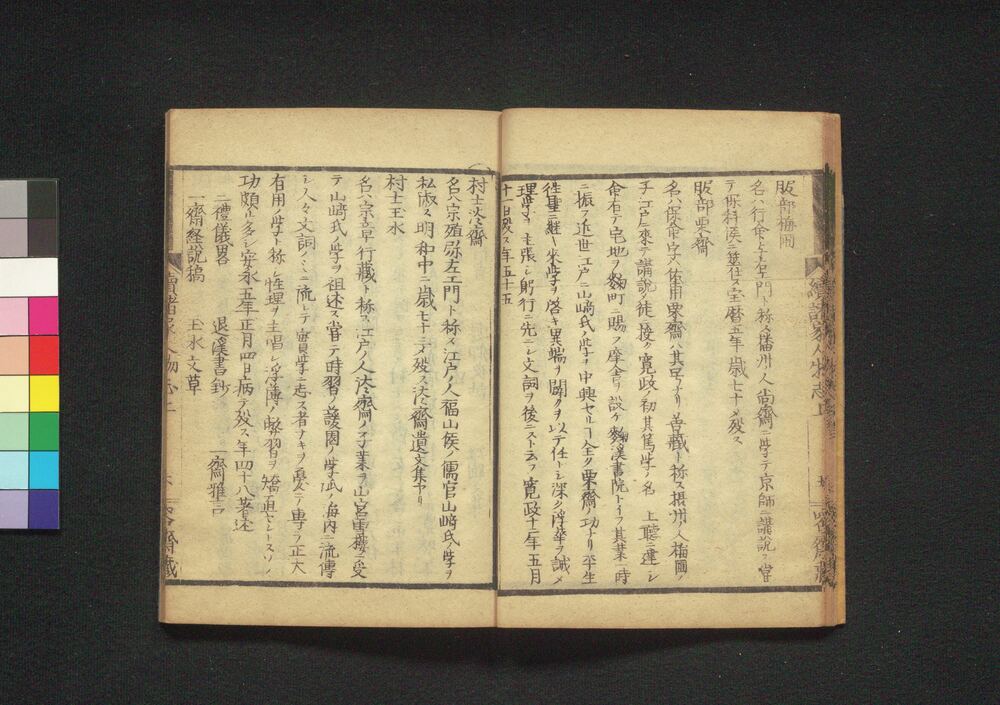 服部梅圃
名ハ行命七左エ門ト称ス播州ノ人尚齋ニ学テ京師ニ講説ス嘗
テ保科侯ニ筮仕ス宝暦五年歳七十〆殁ス
服部栗齋
名ハ保命字ハ佑甫栗齋ハ其号ナリ善藏ト称ス摂州ノ人梅圃ノ
子江戸ニ来テ講説ノ徒ニ授ク寛政ノ初其篤学ノ名 上聴ニ達シ
命有テ宅地ヲ麹町ニ賜フ黌舎ヲ設ケ麹溪書院トイフ其業一時
ニ振フ近世江戸ニ山﨑氏ノ学ヲ中興セルヿ全ク栗齋ノ功ナリ平生
徃聖ニ継キ来学ヲ啓キ異端ヲ闢クヲ以テ任トシ深ク浮華ヲ誡メ
理学ヲ主張シ躬行ニ先ニシ文詞ヲ後ニストニフ寛政十二年五月
十一日殁ス年五十五
村士淡齋
名ハ宗殖弥左エ門ト称ス江戸ノ人福山侯ノ儒官山﨑氏ノ学ヲ
私淑ス明和中ニ歳七十三〆殁ス淡齋遺文集アリ
村士玉水
名ハ宗章行藏ト称ス江戸ノ人淡齋ノ子業ヲ山宮雪樓ニ受
テ山﨑氏ノ学ヲ祖述ス嘗テ時習ノ護園ノ学氏ノ海内ニ流傳
シ人々文詞ノミニ流レテ實学ニ志ス者ナキヲ憂テ専ラ正大
有用ノ学ト称シ性理ヲ主唱シ浮薄ノ弊習ヲ矯直セントスソノ
功頗ル多シ安永五年正月四日病テ殁ス年四十八著述
二禮儀畧 退溪書鈔 一齋雅言
一齋経説稿 玉水文草
續諸家人物志上